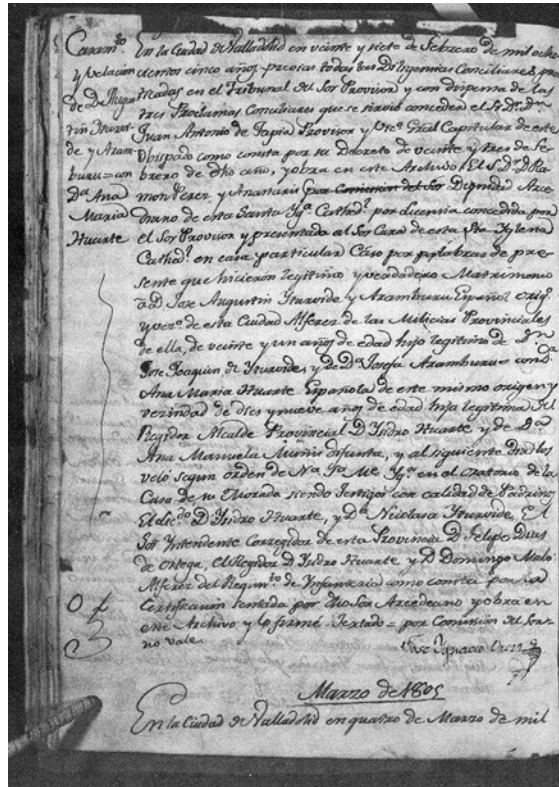 Casam.to
y velacion
de Dn Agus
tin Yturvi
de y Aram
buru = con
Da. Ana
Maria
Huarte
En la Ciudad de Valladolid en veinte y siete de Febrero de mil ocho
cientos cinco años. presas todas las Diligencias Conciliares, prac
ticadas en el Tribunal del Sor Provisor y con dispensa de las
tres Proclamas Conciliares que se sirvio conceder el
Juan Antonio de Tapia Provisor y Vic.o Gral Capitular de este
Obispado como consta por su Decreto de veinte y tres de Fe
brero de dho año, y obra en este Archivo: El S.r D.r D. Ra
mon Perez y Anastaris por Comision del Sor Dignidad Arce
diano de esta Santa Yga. Cathedl. por Licencia concedida por
el Sor Provisor y presentada al Sor Cura de esta Sta Yglesia
Cathedl. en casa particular Caso por palabras de pre
sente que hicieron legitimo y verdadero Matrimonio
a D Jose Augustin Yturvide y Aramburu Español orig.o
y vec.o de esta Ciudad Alferez de las Milicias Provinciales
de ella, de veinte y un años de edad hijo legitimo de Dn.
Jose Joaquin de Yturvide, y de Da Josefa Aramburu = con Da
Ana Maria Huarte Española de este mismo origen y
vecindad de dies y nueve años de edad hija legitima del
Regidor Alcalde Provincial D. Ysidro Huarte y de Da
Ana Manuela Muñis difunta, y al siguiente dia los
veló segun orden de Na. Sa. Me. Yga. en el Oratorio de la
Casa de su Morada siendo testigos con calidad de Padrinos
El Lic.do D. Ysidro Huarte, y Da Nicolasa Yturvide, El
Sor Yntendente Corregidor de esta Provincia D Felipe Dias
de Ortega, el Regidor D Ysidro Huarte y D Domingo Malo
Alferez del Regim.to de Ynfanteria como consta por la
Certificacion sentada por dho Sor Arcedeano y obra en
este Archivo y lo firmé. Textado = por Comision del Sor =
no vale.
Jose Ygnacio
Marzo de 1805
En la Ciudad de Valladolid en quatro de Marzo de mil